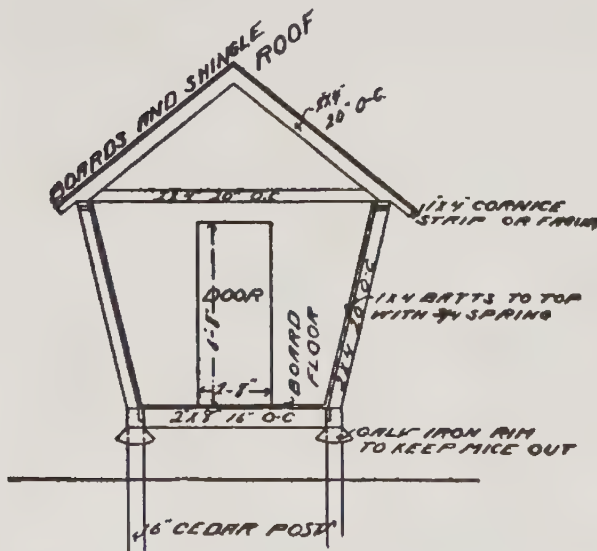 BOARDS AND SHINGLE
ROOF
2X4"
20" O-C.
2X4" 20" O.C
1X4" CORNICE
STRIP OR
DOOR
6'-8"
BOARD
FLOOR
2X4 20" O-C
1X4 BATTS TO TOP
WITH 3/4 SPRING
2'-8"
2"X8" 16" O-C
GALV IRON RIM
TO KEEP MICE OUT
6" CEDAR POST